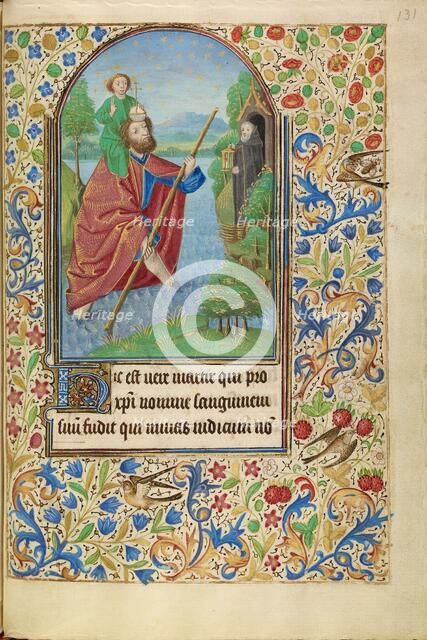 131
Heritage
Heritage
Heritage
Heritage
Hic est vere martir qui pro
xp̄i nomine sanguinem
suū fudit qui minas iudicum nō